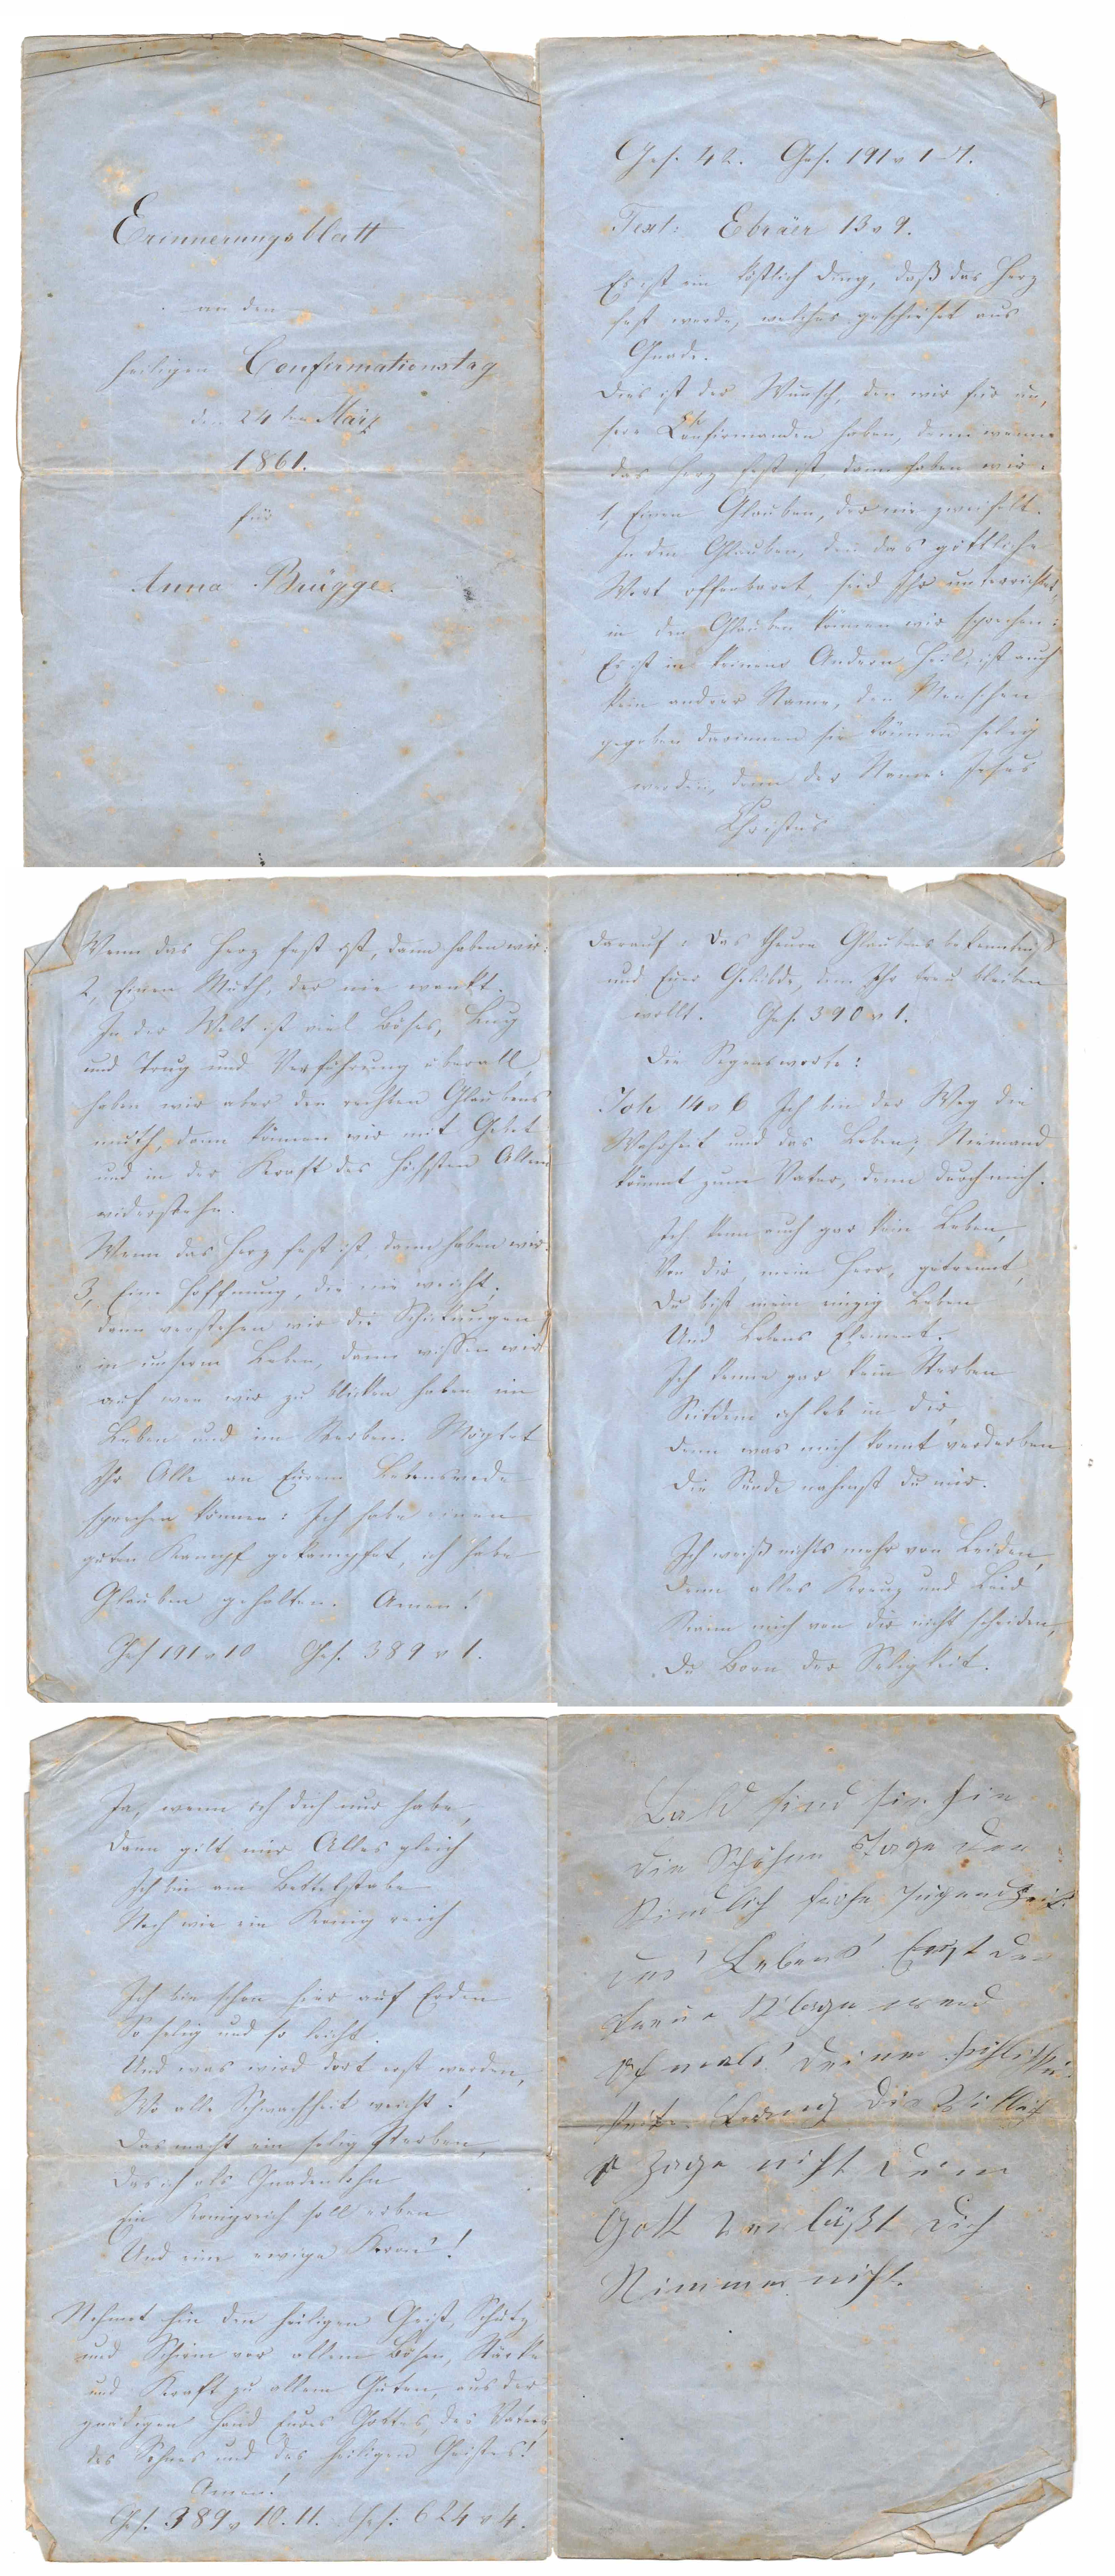 Erinnerungsblatt
an den
heiligen Confirmationstag
den 24ten März
1861.
für
Anna Brügge.
Ges. 42. Ges. 191 v 1-7.
Text: Ebräer 13 v 9.
Es ist ein köstlich Ding, daß das Herz
fest werde, welches geschiehet aus
Gnade.
Dies ist der Wunsch, den wir für un,
sere Confirmanden haben, denn wenn
das Herz fest ist, dann haben wir:
1, Einen Glauben, der nie zweifelt.
In den Glauben, den das göttliche
Wort offenbaret, seid Ihr unterrichtet,
in den Glauben können wir sprechen:
Es ist in keinem Andern Heil, ist auch
kein andrer Name, den Menschen
gegeben darinnen sie können selig
werden, denn der Name: Jesus
Christus
Wenn das Herz fest ist, dann haben wir:
2, Einen Muth, der nie wankt.
In der Welt ist viel Böses, Lug
und Trug und Verführung überall,
haben wir aber den rechten Glaubens
muth, dann können wir mit Gebet
und in der Kraft des Höchsten Allem
widerstehn.
Wenn das Herz fest ist, dann haben wir:
3, Eine Hoffnung, die nie weicht.
dann verstehen wir die Schickungen
in unserm Leben, dann wissen wir
auf wen wir zu blicken haben im
Leben und im Sterben. Möghet
Ihr Alle an Eurem Lebensende
sprechen können: Ich habe einen
guten Kampf gekämpfet, ich habe
Glauben gehalten. Amen!
Ges 191 v 10 Ges. 389 v 1.
Darauf: Das theure Glaubensbekenntniß
und Euer Gelübde, dem Ihr treu bleiben
wollt. Ges. 390 v 1.
Die Segensworte:
Joh 14 v 6 Ich bin der Weg die
Wahrheit und das Leben; Niemand
kömmt zum Vater, denn durch mich.
Ich kenn auch gar kein Leben,
Von dir, mein Herr, getrennt,
Du bist mein einzig Leben
Und Lebens Element.
Ich kenne gar kein Sterben
Seitdem ich leb in dir,
Denn was mich konnt verderben
Die Sünde nahmst du mir.
Ich weiß nichts mehr von Leiden,
Denn alles Kreuz und Leid
Kann mich von dir nicht scheiden,
Du Born der Seligkeit.
Ja, wenn ich dich nur habe,
Dann gilt mir Alles gleich
Ich bin am Bettelstabe
Noch wie ein König reich
Ich bin schon hier auf Erden
So selig und so leicht.
Und was wird dort erst werden,
Wo alle Schwachheit weicht!
Das macht ein selig Sterben,
Das ich als Gnadenlohn
Ein Königreich soll erben
Und eine ewige Kron'!
Nehmet hin den heiligen Geist, Schutz
und Schirm vor allem Bösen, Stärke
und Kraft zu allem Guten, aus der
gnädigen Hand Eures Gottes, des Vaters,
des Sohnes und des heiligen Geistes!
Amen!
Ges. 389 v 10. 11. Ges. 624 v 4.
Bald sind sie hin
die Schönen Tage der
Kindlich frohe Jugendzeit
des Lebens' Ernst der
Klage und
Oftmals' deiner
Zage nicht dein
Gott verläßt dich
Nimmer nicht.